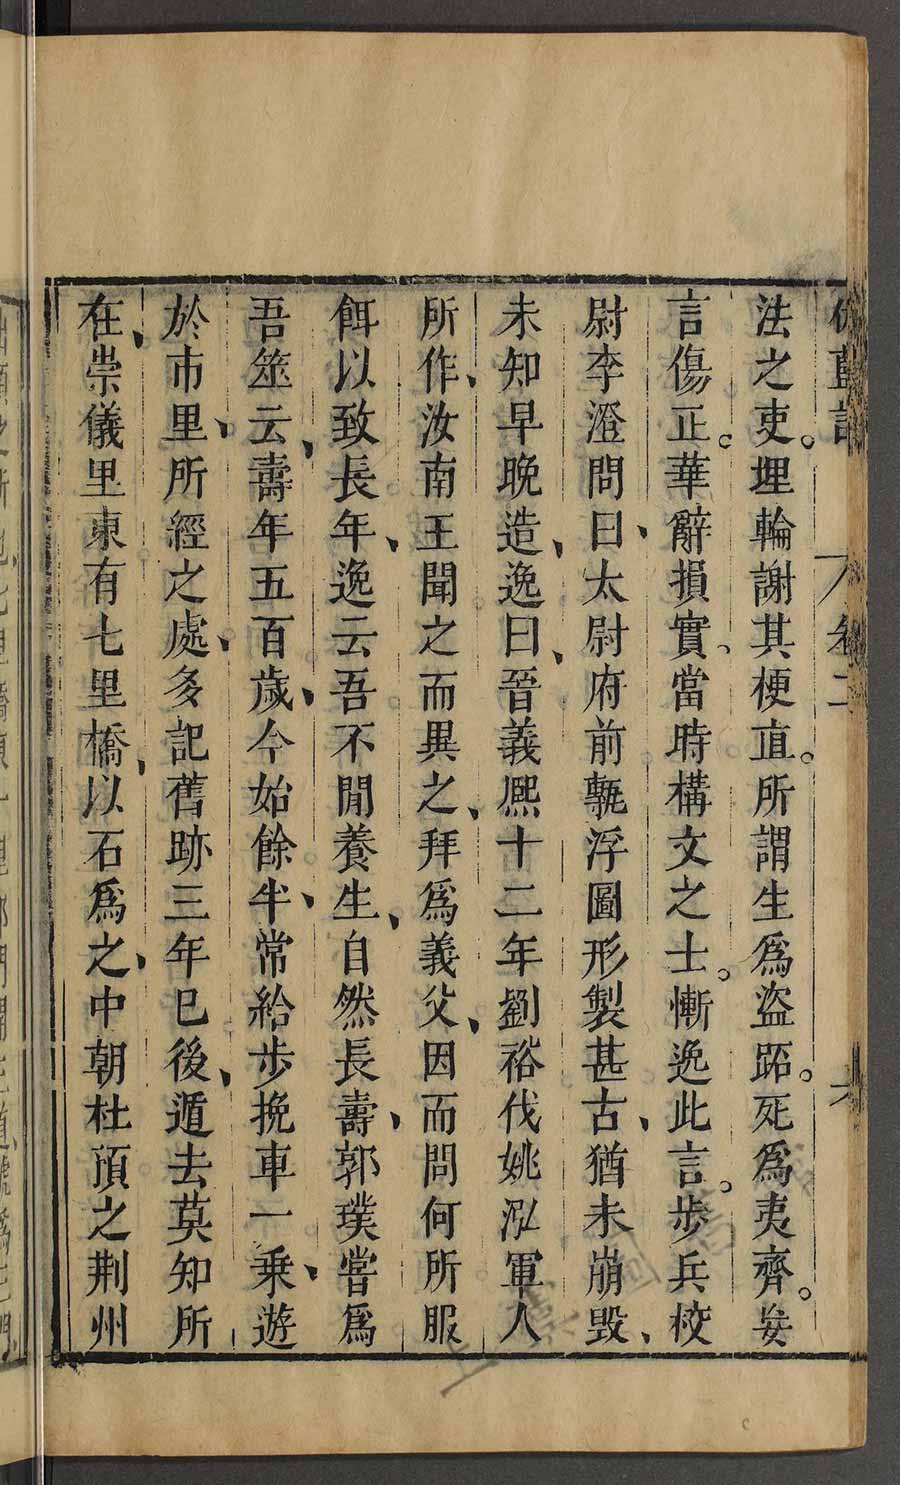 伽藍記 卷二 六
法之吏。埋輪謝其梗直。所謂生爲盜跖。死爲夷齊。妄
言傷正。華辭損實、當時構文之士。慚逸此言。步兵校
尉李澄問曰、太尉府前甎浮圖形製甚古、猶未崩毀、
未知早晚造、逸曰、晉義熙十二年劉裕伐姚泓軍人
所作、汝南王聞之而異之、拜爲義父、因而問何所服
餌以致長年、逸云吾不閒養生、自然長壽、郭璞嘗爲
吾筮云、壽年五百歲、今始餘半、常給步挽車一乗、遊
於市里、所經之處、多記舊跡三年已後、遁去莫知所
在、崇儀里東有七里橋、以石爲之、中朝杜預之荆州